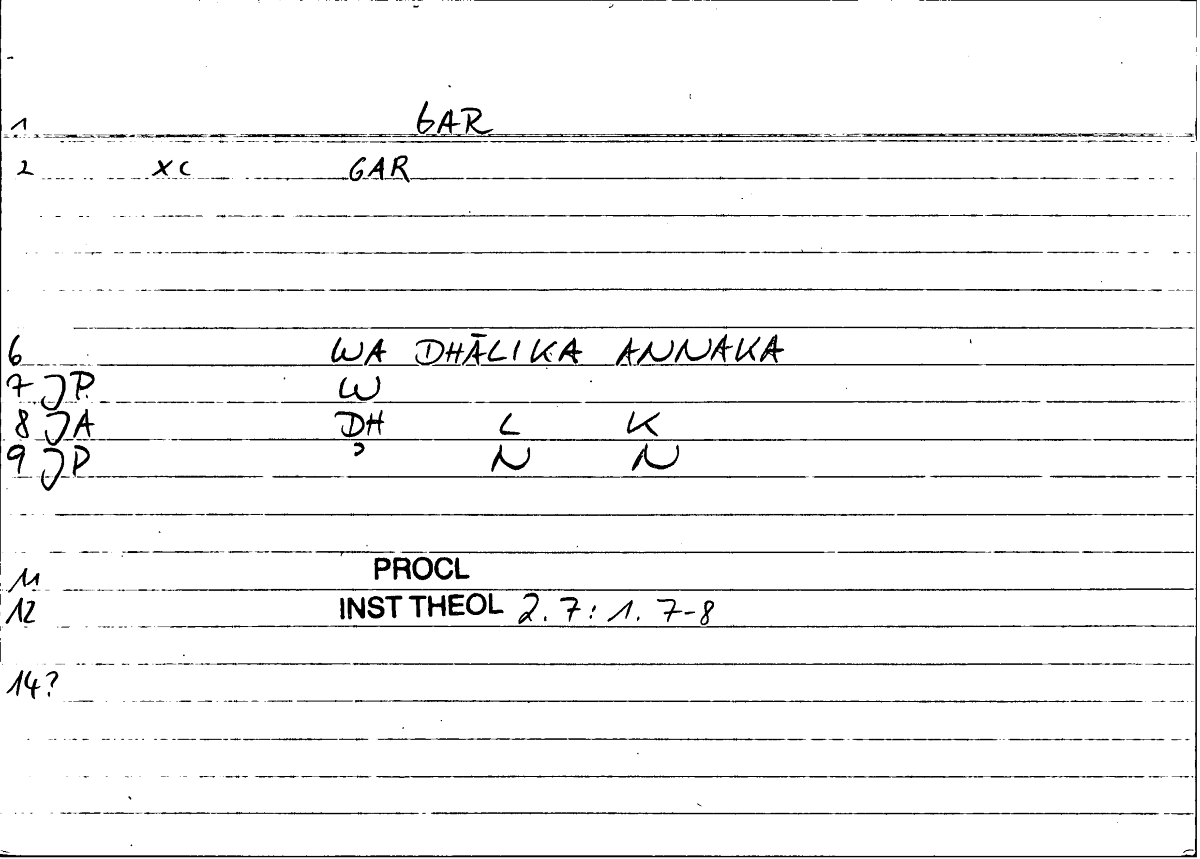 1 GAR
2 XC GAR
6 WA DHĀLIKA ANNAKA
7 JP. W
8 JA DH L K
9 JP ʾ N N
11 PROCL
12 INST THEOL 2.7:1.7-8
14?